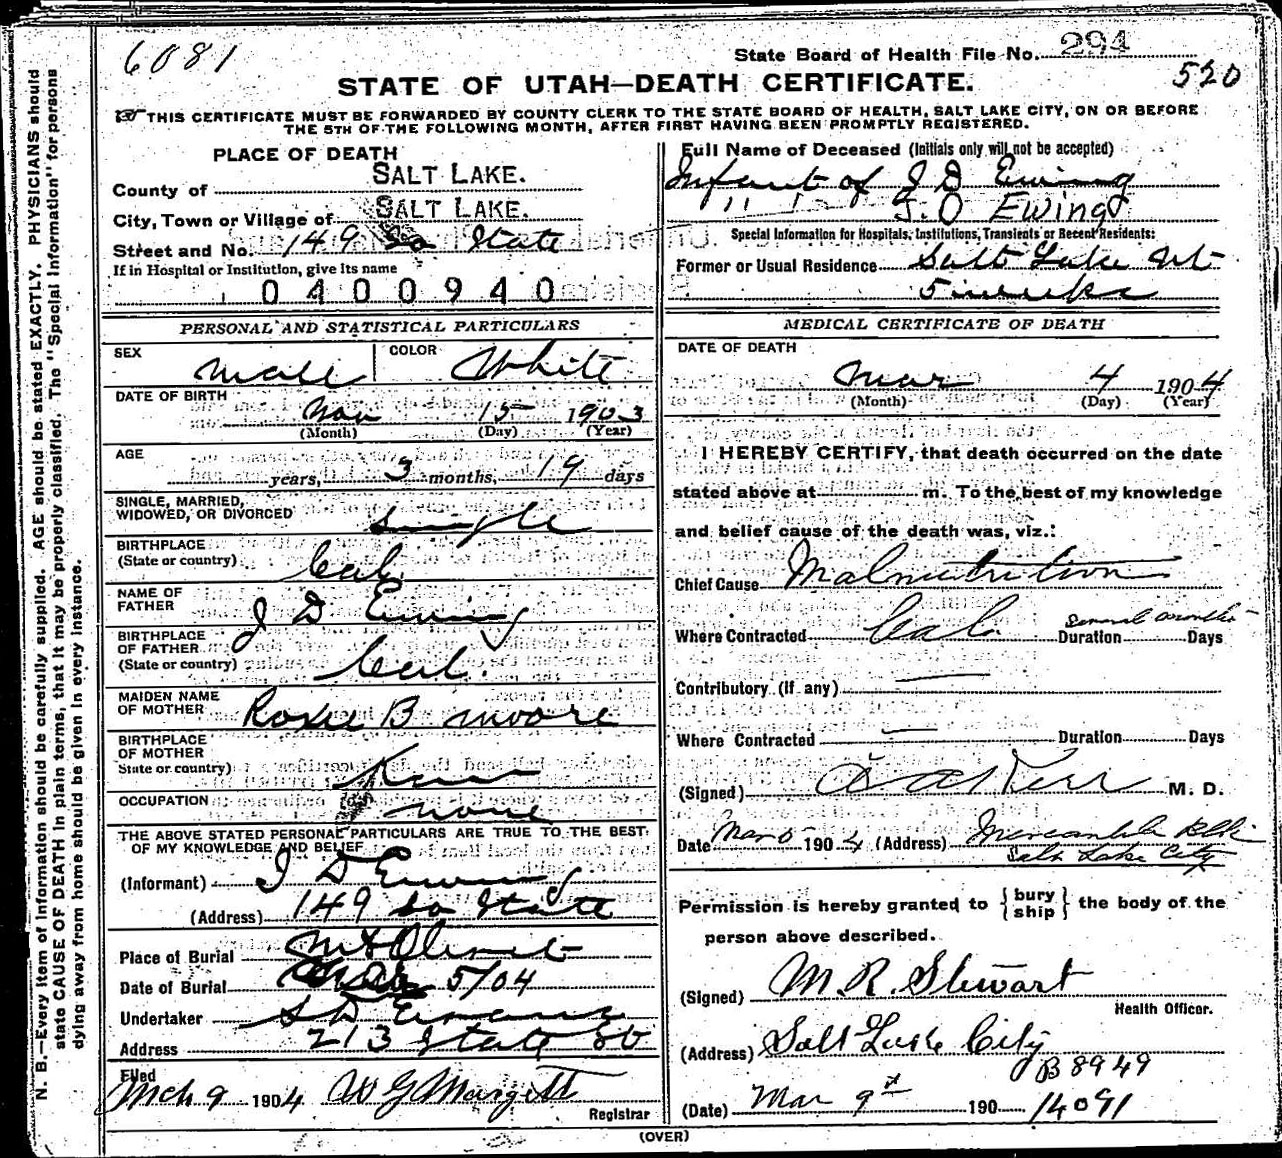 6081
State Board of Health File No. 294
520
STATE OF UTAH—DEATH CERTIFICATE.
THIS CERTIFICATE MUST BE FORWARDED BY COUNTY CLERK TO THE STATE BOARD OF HEALTH, SALT LAKE CITY, ON OR BEFORE
THE 5TH OF THE FOLLOWING MONTH, AFTER FIRST HAVING BEEN PROMPTLY REGISTERED.
PLACE OF DEATH
County of SALT LAKE.
City, Town or Village of SALT LAKE.
Street and No. 149 So State
If in Hospital or Institution, give its name
0400940
Full Name of Deceased (Initials only will not be accepted)
Infant of J D Ewing
" J. D EWING
Special Information for Hospitals, Institutions, Transients or Recent Residents:
Former or Usual Residence Salt Lake Ut
5 weeks
PERSONAL AND STATISTICAL PARTICULARS
SEX Male COLOR White
DATE OF BIRTH Nov 15 1903
(Month) (Day) (Year)
AGE years, 3 months, 19 days
SINGLE, MARRIED,
WIDOWED, OR DIVORCED single
BIRTHPLACE
(State or country) Cal
NAME OF
FATHER J D Ewing
BIRTHPLACE
OF FATHER
(State or country) Cal.
MAIDEN NAME
OF MOTHER Roxie B Moore
BIRTHPLACE
OF MOTHER
State or country)
OCCUPATION none
THE ABOVE STATED PERSONAL PARTICULARS ARE TRUE TO THE BEST
OF MY KNOWLEDGE AND BELIEF
(Informant) J D Ewing
(Address) 149 So State
Place of Burial Mt Olivet
Date of Burial 5/04
Undertaker S D Evans
Address 213 State St
Filed
Mch 9 1904 W G Margetts
Registrar
MEDICAL CERTIFICATE OF DEATH
DATE OF DEATH
Mar 4 1904
(Month) (Day) (Year)
I HEREBY CERTIFY, that death occurred on the date
stated above at m. To the best of my knowledge
and belief cause of the death was, viz.:
Chief Cause Malnutrition
Where Contracted Cal. Duration several months Days
Contributory (if any)
Where Contracted Duration Days
(Signed) Kerr M. D.
Date Mar 5 1904 (Address) Mercantile Blk
Salt Lake City
Permission is hereby granted to {bury ship} the body of the
person above described.
(Signed) M. R. Stewart
Health Officer.
(Address) Salt Lake City
B 8949
(Date) Mar 9th 190 14091
(OVER)
N. B.—Every item of information should be carefully supplied. AGE should be stated EXACTLY. PHYSICIANS should
state CAUSE OF DEATH in plain terms, that it may be properly classified. The "Special Information" for persons
dying away from home should be given in every instance.